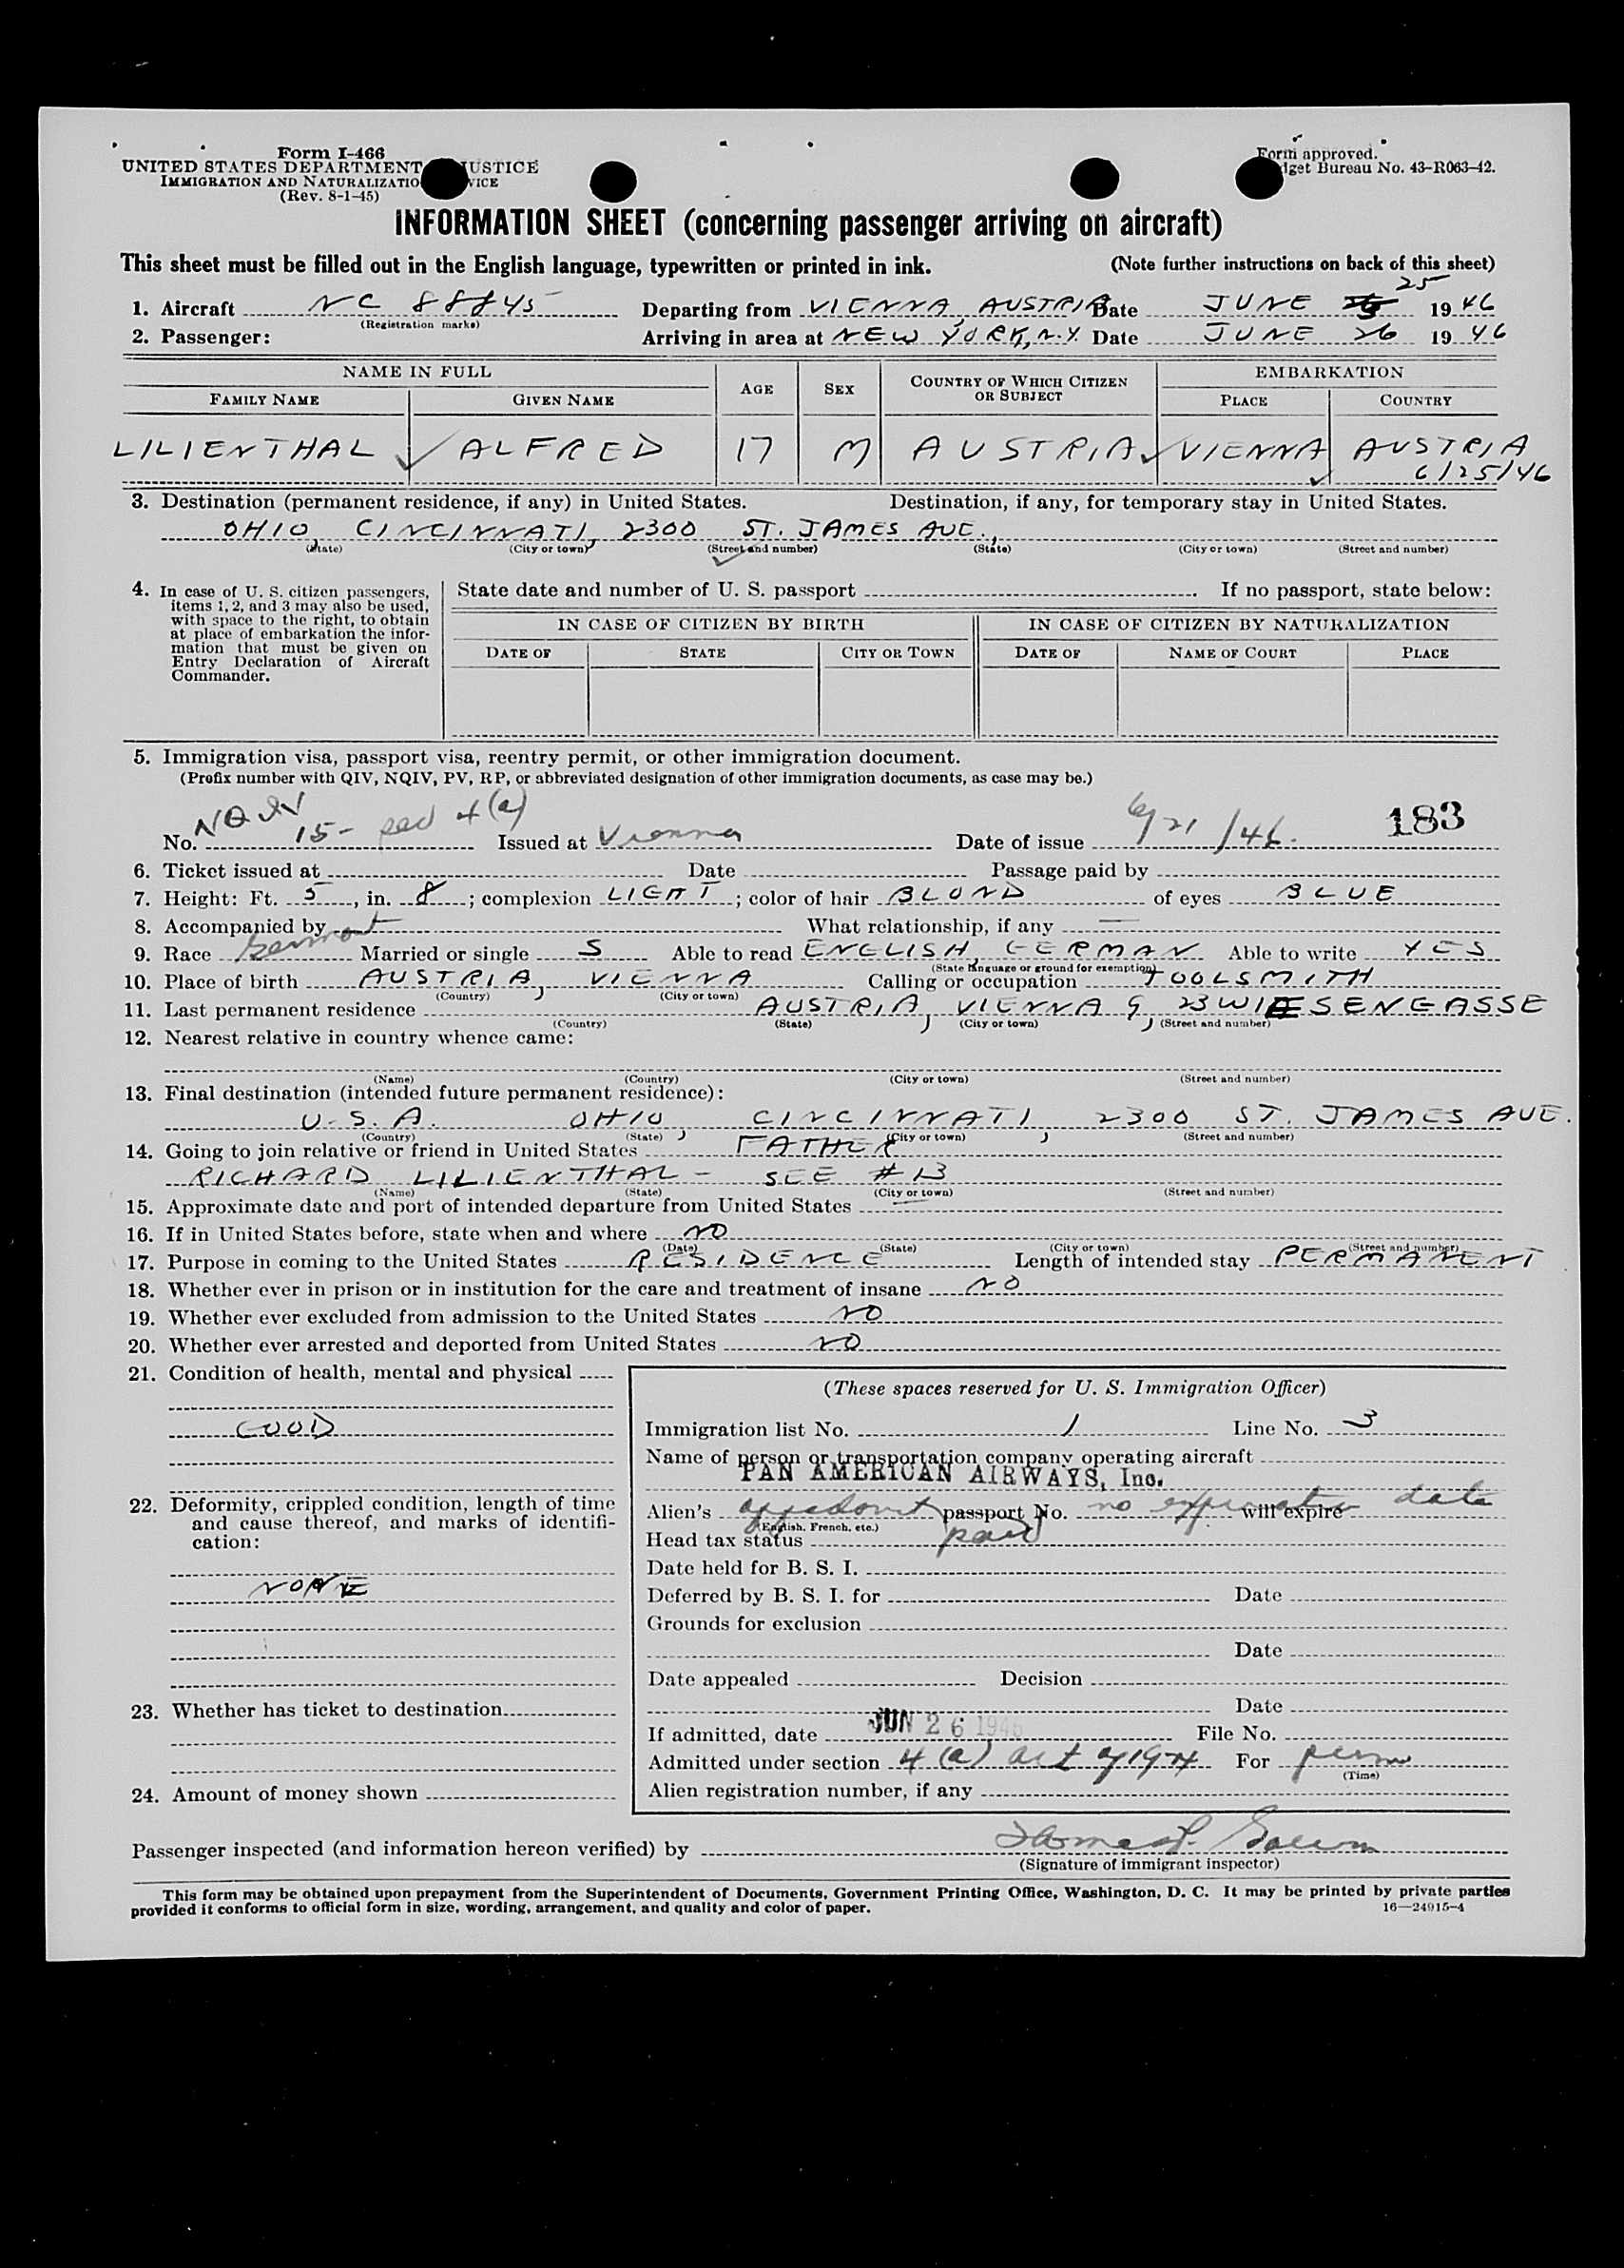 Form I-466
UNITED STATES DEPARTMENT JUSTICE
IMMIGRATION AND NATURALIZATIO VICE
(Rev. 8-1-45)
Form approved.
dget Bureau No. 43-R063-42.
INFORMATION SHEET (concerning passenger arriving on aircraft)
This sheet must be filled out in the English language, typewritten or printed in ink. (Note further instructions on back of this sheet)
1. Aircraft NC 88845 Departing from VIENNA, AUSTRIA Date JUNE 25 1946
(Registration marks)
2. Passenger: Arriving in area at NEW YORK, N.Y. Date JUNE 26 1946
NAME IN FULL AGE SEX COUNTRY OF WHICH CITIZEN OR SUBJECT EMBARKATION
FAMILY NAME GIVEN NAME PLACE COUNTRY
LILIENTHAL ALFRED 17 M AUSTRIA VIENNA AUSTRIA
6/25/46
3. Destination (permanent residence, if any) in United States. Destination, if any, for temporary stay in United States.
OHIO, CINCINNATI, 2300 ST. JAMES AVE.,
(State) (City or town) (Street and number) (State) (City or town) (Street and number)
4. In case of U. S. citizen passengers, items 1, 2, and 3 may also be used, with space to the right, to obtain at place of embarkation the information that must be given on Entry Declaration of Aircraft Commander.
State date and number of U. S. passport If no passport, state below:
IN CASE OF CITIZEN BY BIRTH IN CASE OF CITIZEN BY NATURALIZATION
DATE OF STATE CITY OR TOWN DATE OF NAME OF COURT PLACE
5. Immigration visa, passport visa, reentry permit, or other immigration document.
(Prefix number with QIV, NQIV, PV, RP, or abbreviated designation of other immigration documents, as case may be.)
No. NQIV 15- 4(a) Issued at Vienna Date of issue 6/21/46. 183
6. Ticket issued at Date Passage paid by
7. Height: Ft. 5, in. 8; complexion LIGHT; color of hair BLOND of eyes BLUE
8. Accompanied by What relationship, if any —
9. Race German Married or single S Able to read ENGLISH, GERMAN Able to write YES
(State language or ground for exemption)
10. Place of birth AUSTRIA, VIENNA Calling or occupation TOOLSMITH
(Country) (City or town)
11. Last permanent residence AUSTRIA, VIENNA 9, 23 WIESENGASSE
(Country) (State) (City or town) (Street and number)
12. Nearest relative in country whence came:
(Name) (Country) (City or town) (Street and number)
13. Final destination (intended future permanent residence):
U.S.A. OHIO, CINCINNATI, 2300 ST. JAMES AVE.
(Country) (State) (City or town) (Street and number)
14. Going to join relative or friend in United States FATHER
RICHARD LILIENTHAL - SEE #13
(Name) (State) (City or town) (Street and number)
15. Approximate date and port of intended departure from United States —
16. If in United States before, state when and where NO
(Date) (State) (City or town) (Street and number)
17. Purpose in coming to the United States RESIDENCE Length of intended stay PERMANENT
18. Whether ever in prison or in institution for the care and treatment of insane NO
19. Whether ever excluded from admission to the United States NO
20. Whether ever arrested and deported from United States NO
21. Condition of health, mental and physical
GOOD
22. Deformity, crippled condition, length of time and cause thereof, and marks of identification:
NONE
23. Whether has ticket to destination
24. Amount of money shown
(These spaces reserved for U. S. Immigration Officer)
Immigration list No. 1 Line No. 3
Name of person or transportation company operating aircraft
PAN AMERICAN AIRWAYS, Inc.
Alien's passport No. no expiration date will expire
(English, French, etc.)
Head tax status paid
Date held for B. S. I.
Deferred by B. S. I. for Date
Grounds for exclusion
Date
Date appealed Decision
Date
If admitted, date JUN 26 1946 File No.
Admitted under section 4(a) act of 1924 For perm
(Time)
Alien registration number, if any
Passenger inspected (and information hereon verified) by
(Signature of immigrant inspector)
This form may be obtained upon prepayment from the Superintendent of Documents, Government Printing Office, Washington, D. C. It may be printed by private parties
provided it conforms to official form in size, wording, arrangement, and quality and color of paper. 16—24915-4